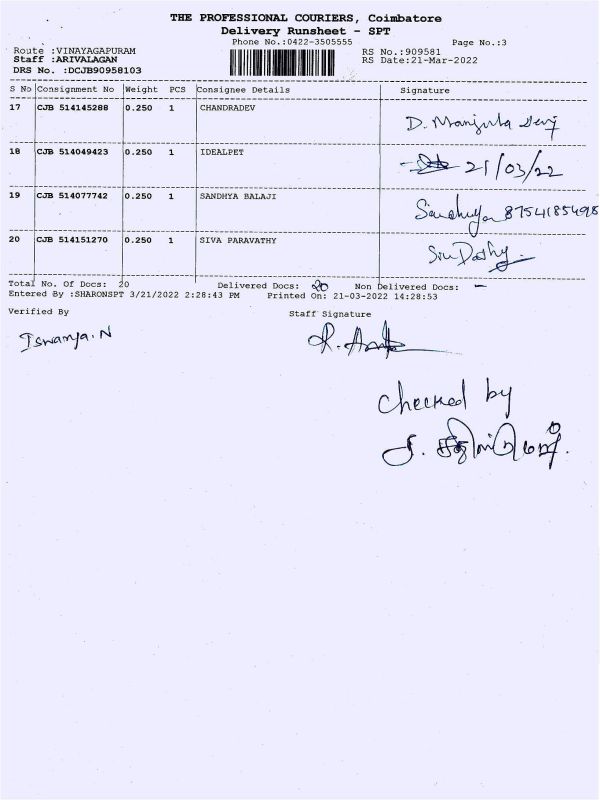 THE PROFESSIONAL COURIERS, Coimbatore
Delivery Runsheet - SPT
Phone No.:0422-3505555 Page No.:3
Route :VINAYAGAPURAM RS No.:909581
Staff :ARIVALAGAN RS Date:21-Mar-2022
DRS No. :DCJB90958103
S No Consignment No Weight PCS Consignee Details Signature
17 CJB 514145288 0.250 1 CHANDRADEV
D. Manjula Devi
18 CJB 514049423 0.250 1 IDEALPET
21/03/22
19 CJB 514077742 0.250 1 SANDHYA BALAJI
Sandhya 8754185498
20 CJB 514151270 0.250 1 SIVA PARAVATHY
Total No. Of Docs: 20 Delivered Docs: 20 Non Delivered Docs: -
Entered By :SHARONSPT 3/21/2022 2:28:43 PM Printed On: 21-03-2022 14:28:53
Verified By Staff Signature
Iswarya.N
checked by